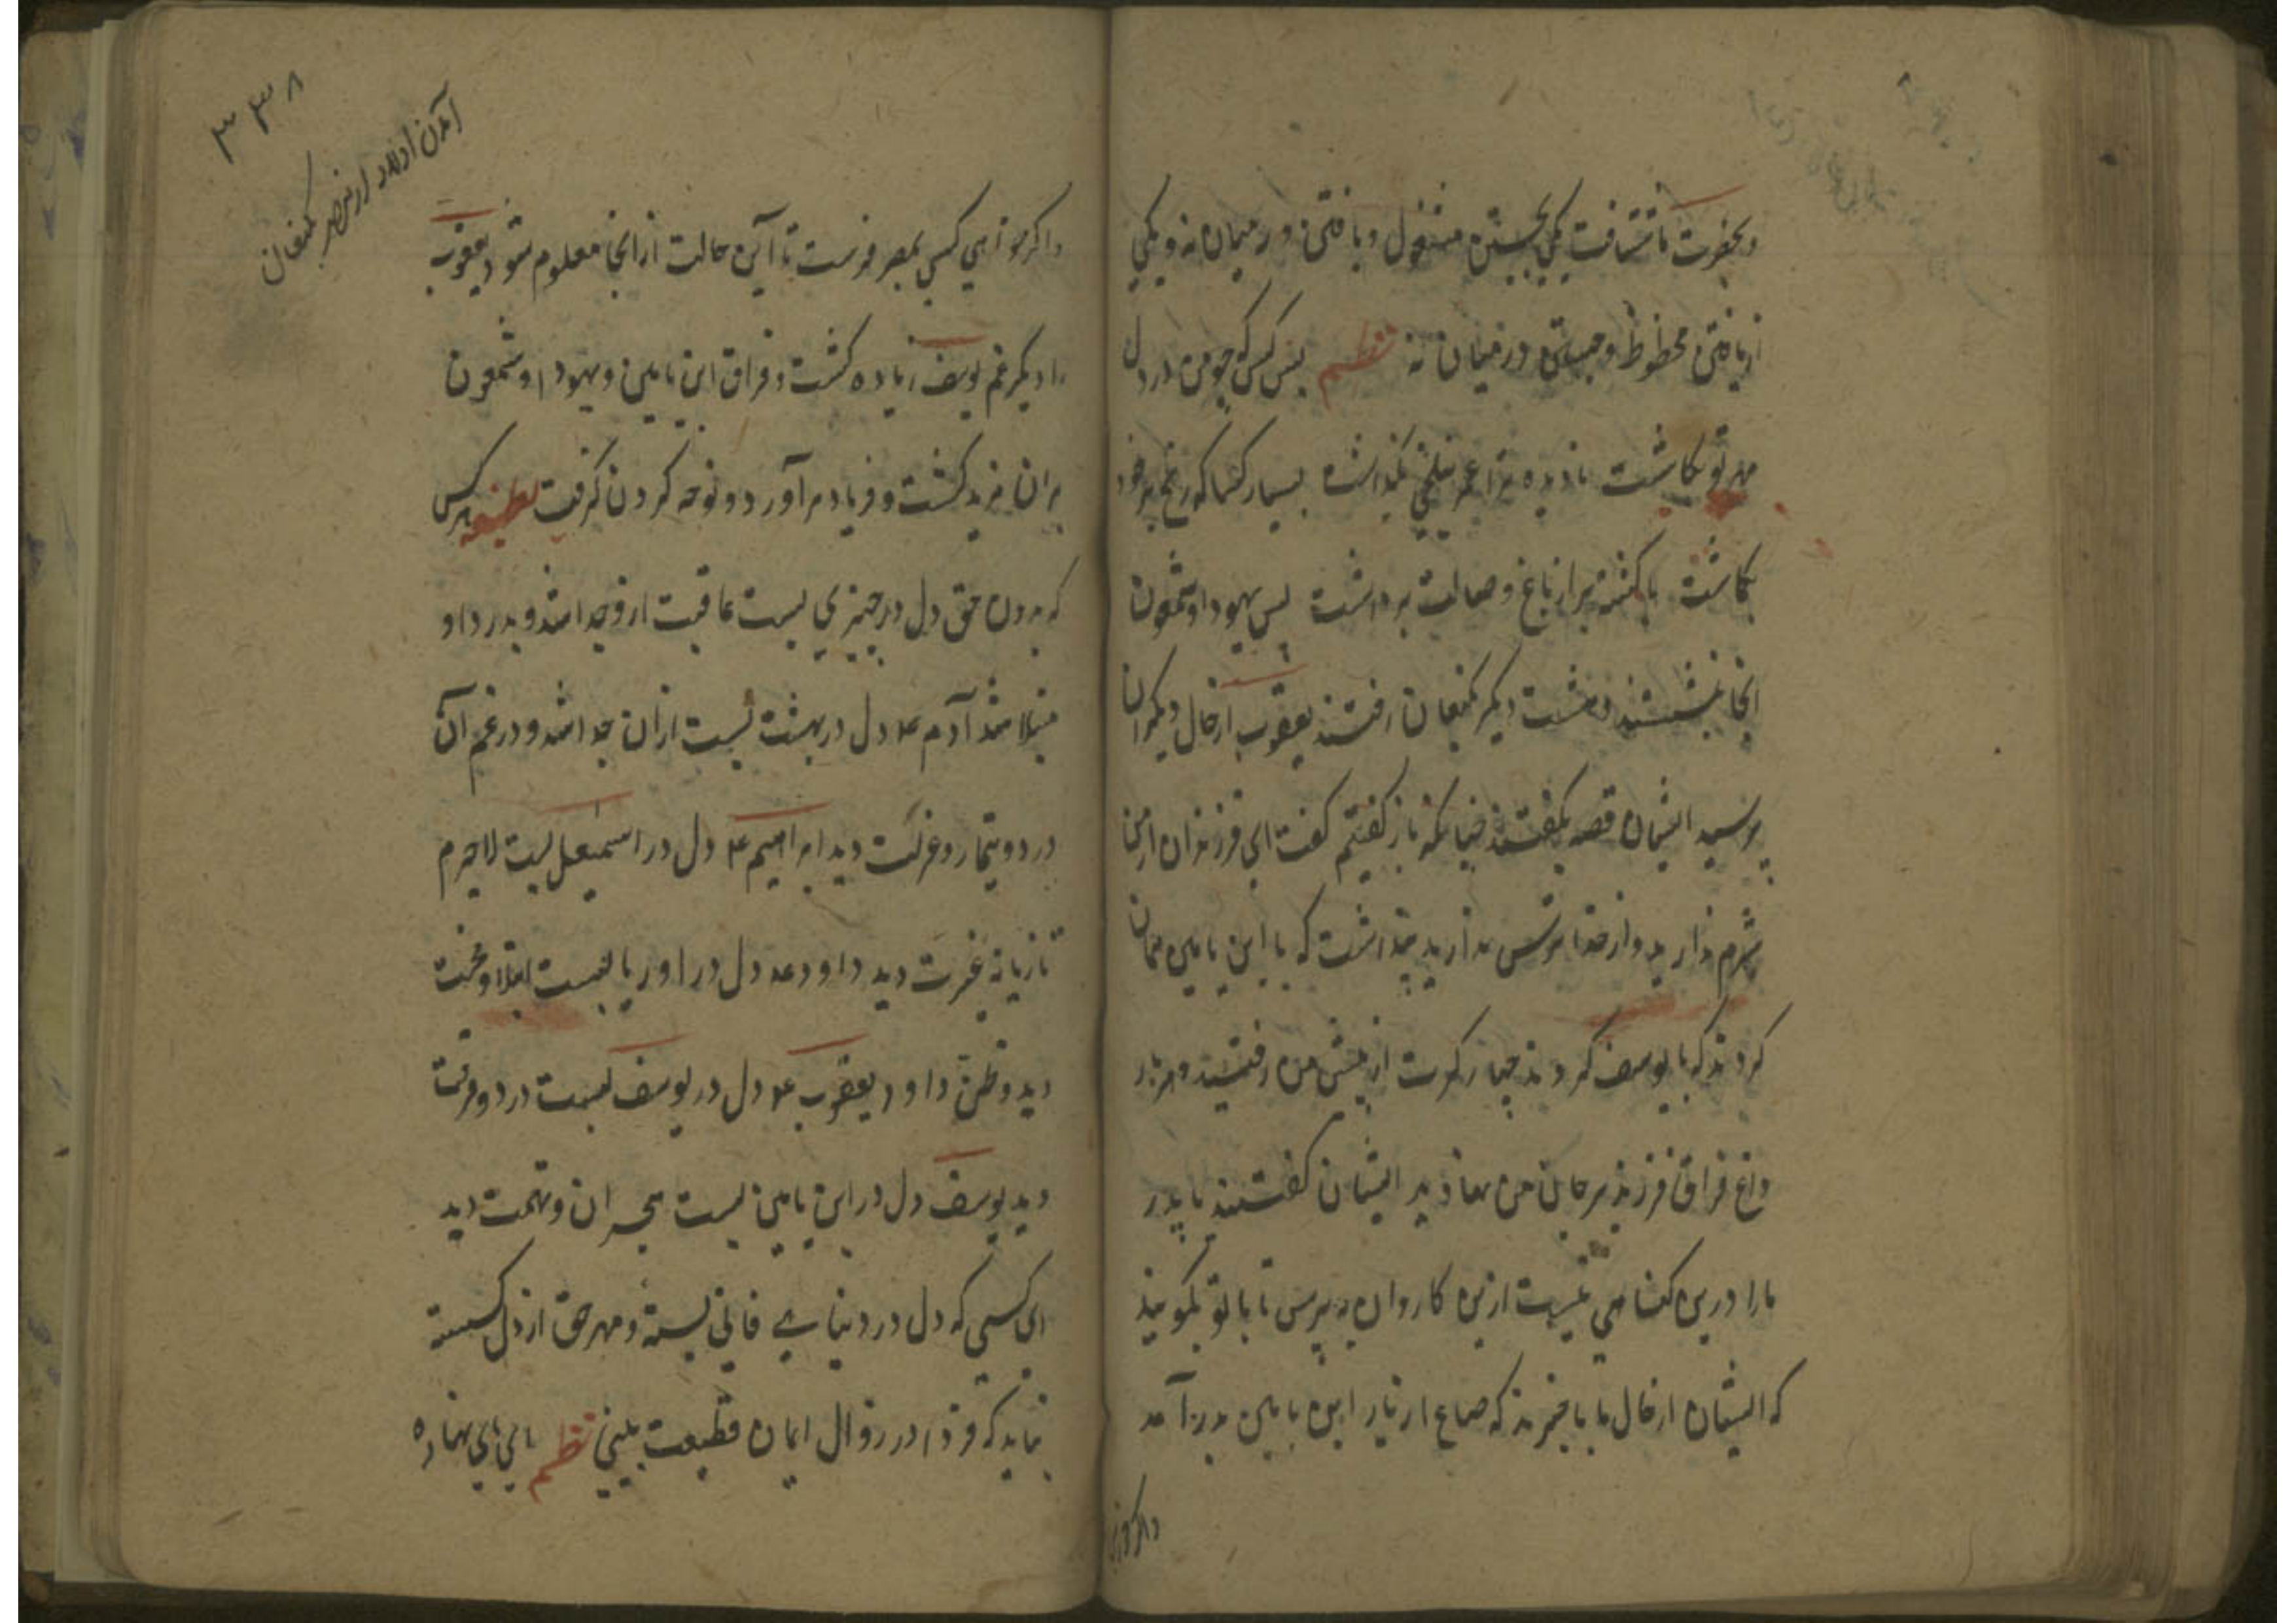 وبحضرت ما شتافت یکی بجستن مشغول و یافتن در میان نه و یکی
از یافتن محظوظ و جستن در میان نه نظم بس کس که چو من در دل
مهر تو کاشت نادیده بر عمر بتلخی بگذاشت بسیار کسا که رنج بر خود
بگماشت ناکشته بر از باغ وصالت برداشت پس یهودا و شمعون
انجا بنشستند و هشت دیگر بکنعان رفتند یعقوب از حال دیگران
پرسید ایشان قصه بگفتند چنانکه باز گفتیم گفت ای فرزندان از من
شرم ندارید و از خدا ترس ندارید که با ابن یامین همان
کردند که با یوسف کردند چهار کرت از پیش من رفتند و هر بار
داغ فراق فرزند بر جان من نهادید ایشان گفتند یا پدر
مارا درین گناهی نیست ازین کاروان بپرس تا با تو بگویند
که ایشان از حال ما باخبرند که صاع از بار ابن یامین بدر آمد
۳۳۸
آمدن از مصر بکنعان
و اگر خواهی کسی بمصر فرست تا این حالت از انجا معلوم شود یعقوب
را دیگر غم یوسف زیاده گشت و فراق ابن یامین و یهودا و شمعون
بران مزید گشت و فریاد برآورد و نوحه کردن گرفت لطیفه هر کس
که بدون حق دل در چیزی بست عاقبت ازو جدا شد و بدرد او
مبتلا شد آدم ع دل در بهشت بست ازان جدا شد و در غم آن
درد و تیمار و غربت دید ابراهیم ع دل در اسمعیل بست لاجرم
تازیانه غیرت دید داود ع دل در اوریا بست ابتلا و محنت
دید و ظن داود یعقوب ع دل در یوسف بست درد و فرقت
دید یوسف دل در ابن یامین بست هجران و تهمت دید
ای کسی که دل در دنیای فانی بسته و مهر حق از دل گسسته
نباید که فردا در زوال ایمان قطیعت بینی نظم ای نهاده